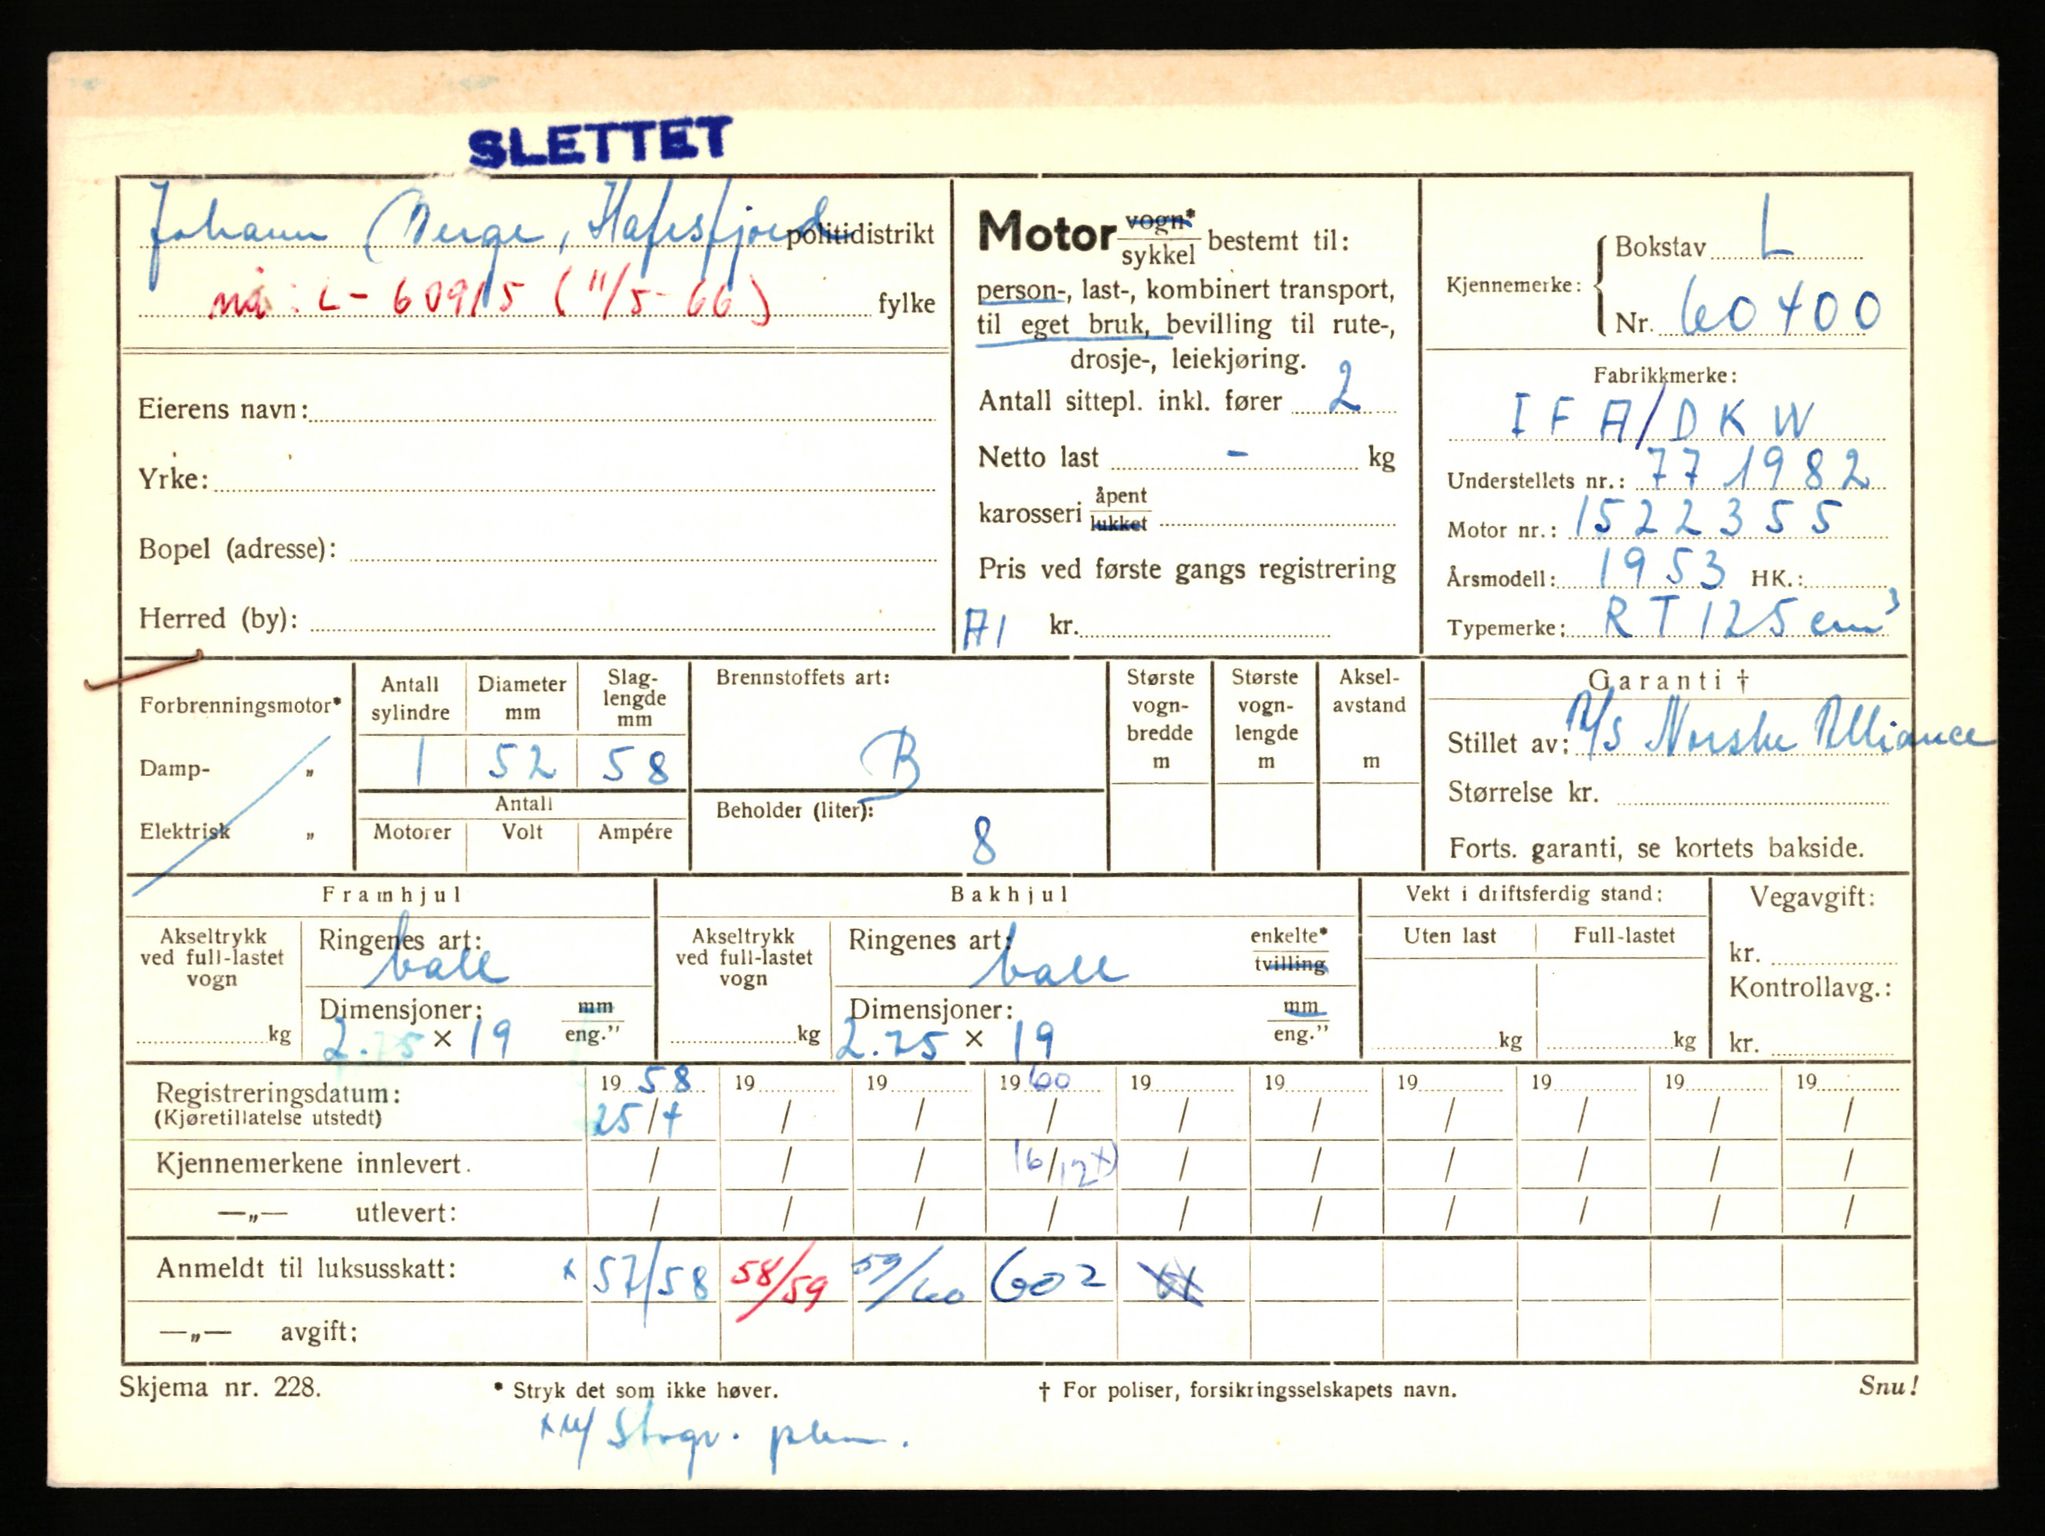 SLETTET
Johann Berge, Hafrsfjord politidistrikt
nå: L-60915 (11/5-66) fylke
Eierens navn:
Yrke:
Bopel (adresse):
Herred (by):
Motor vogn* / sykkel bestemt til:
person-, last-, kombinert transport,
til eget bruk, bevilling til rute-,
drosje-, leiekjøring.
Antall sittepl. inkl. fører 2
Netto last - kg
karosseri åpent / lukket
Pris ved første gangs registrering
A1 kr.
Kjennemerke: Bokstav L
Nr. 60400
Fabrikkmerke:
IFA/DKW
Understellets nr.: 771982
Motor nr.: 1522355
Årsmodell: 1953 HK.:
Typemerke: RT 125 cm³
Forbrenningsmotor*
Damp- „
Elektrisk „
Antall sylindre Diameter mm Slag-lengde mm
1 52 58
Antall
Motorer Volt Ampére
Brennstoffets art:
B
Beholder (liter):
8
Største vogn-bredde m
Største vogn-lengde m
Aksel-avstand m
Garanti †
Stillet av: A/S Norske Alliance
Størrelse kr.
Forts. garanti, se kortets bakside.
Framhjul
Akseltrykk ved full-lastet vogn
kg
Ringenes art:
ball
Dimensjoner: mm / eng.”
2.75 × 19
Bakhjul
Akseltrykk ved full-lastet vogn
kg
Ringenes art: enkelte* / tvilling
ball
Dimensjoner: mm / eng.”
2.75 × 19
Vekt i driftsferdig stand:
Uten last Full-lastet
kg kg
Vegavgift:
kr.
Kontrollavg.:
kr.
Registreringsdatum: 1958 19 19 1960 19 19 19 19 19 19
(Kjøretillatelse utstedt) 25/4 / / / / / / / / /
Kjennemerkene innlevert. / / / 16/12 x) / / / / / /
—„— utlevert: / / / / / / / / / /
Anmeldt til luksusskatt: x 57/58 58/59 59/60 602
—„— avgift:
Skjema nr. 228. * Stryk det som ikke høver. † For poliser, forsikringsselskapets navn. Snu!